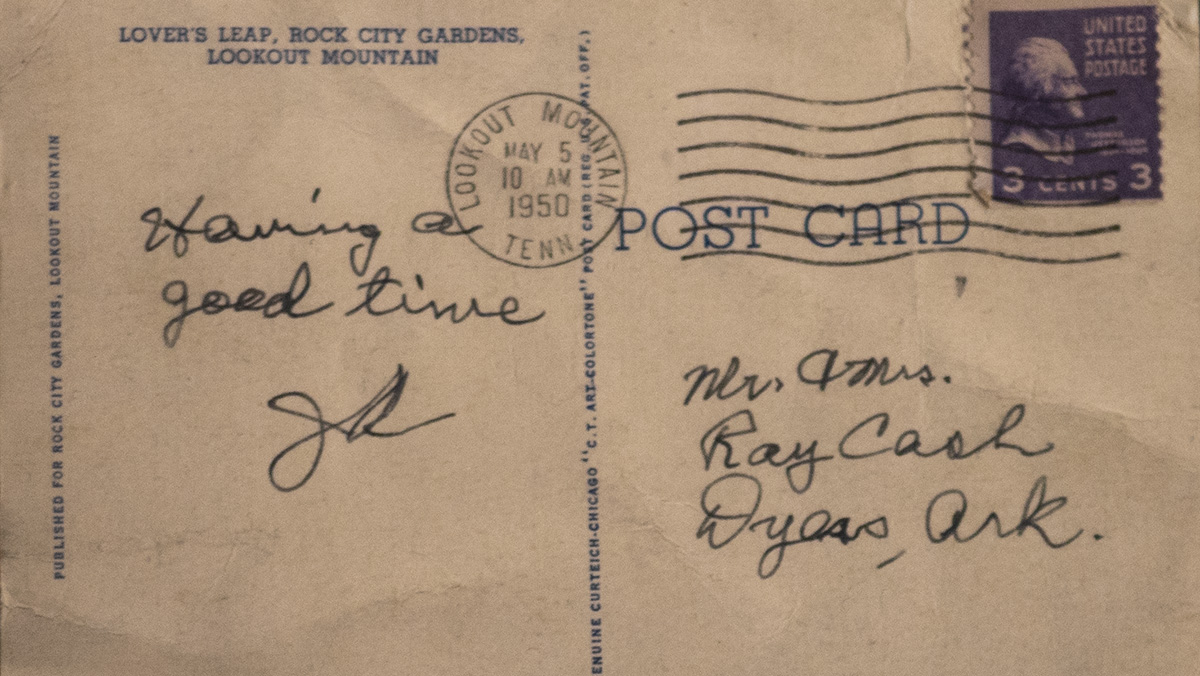 LOVER'S LEAP, ROCK CITY GARDENS,
LOOKOUT MOUNTAIN
PUBLISHED FOR ROCK CITY GARDENS, LOOKOUT MOUNTAIN
LOOKOUT MOUNTAIN
MAY 5
10 AM
1950
TENN
UNITED
STATES
POSTAGE
3 CENTS 3
POST CARD
ENUINE CURTEICH-CHICAGO "C.T. ART-COLORTONE" POST CARD (REG. U.S. PAT. OFF.)
Having a
good time
JR
Mr. & Mrs.
Ray Cash
Dyess, Ark.